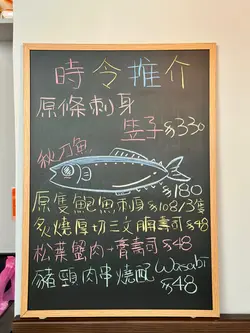 時令推介
原條刺身
笠子 $330
秋刀魚
$180
原隻鮑魚刺身 $108/3隻
炙燒厚切三文腩壽司 $48
松葉蟹肉+膏壽司 $48
豬頸肉串燒配 Wasabi
$48